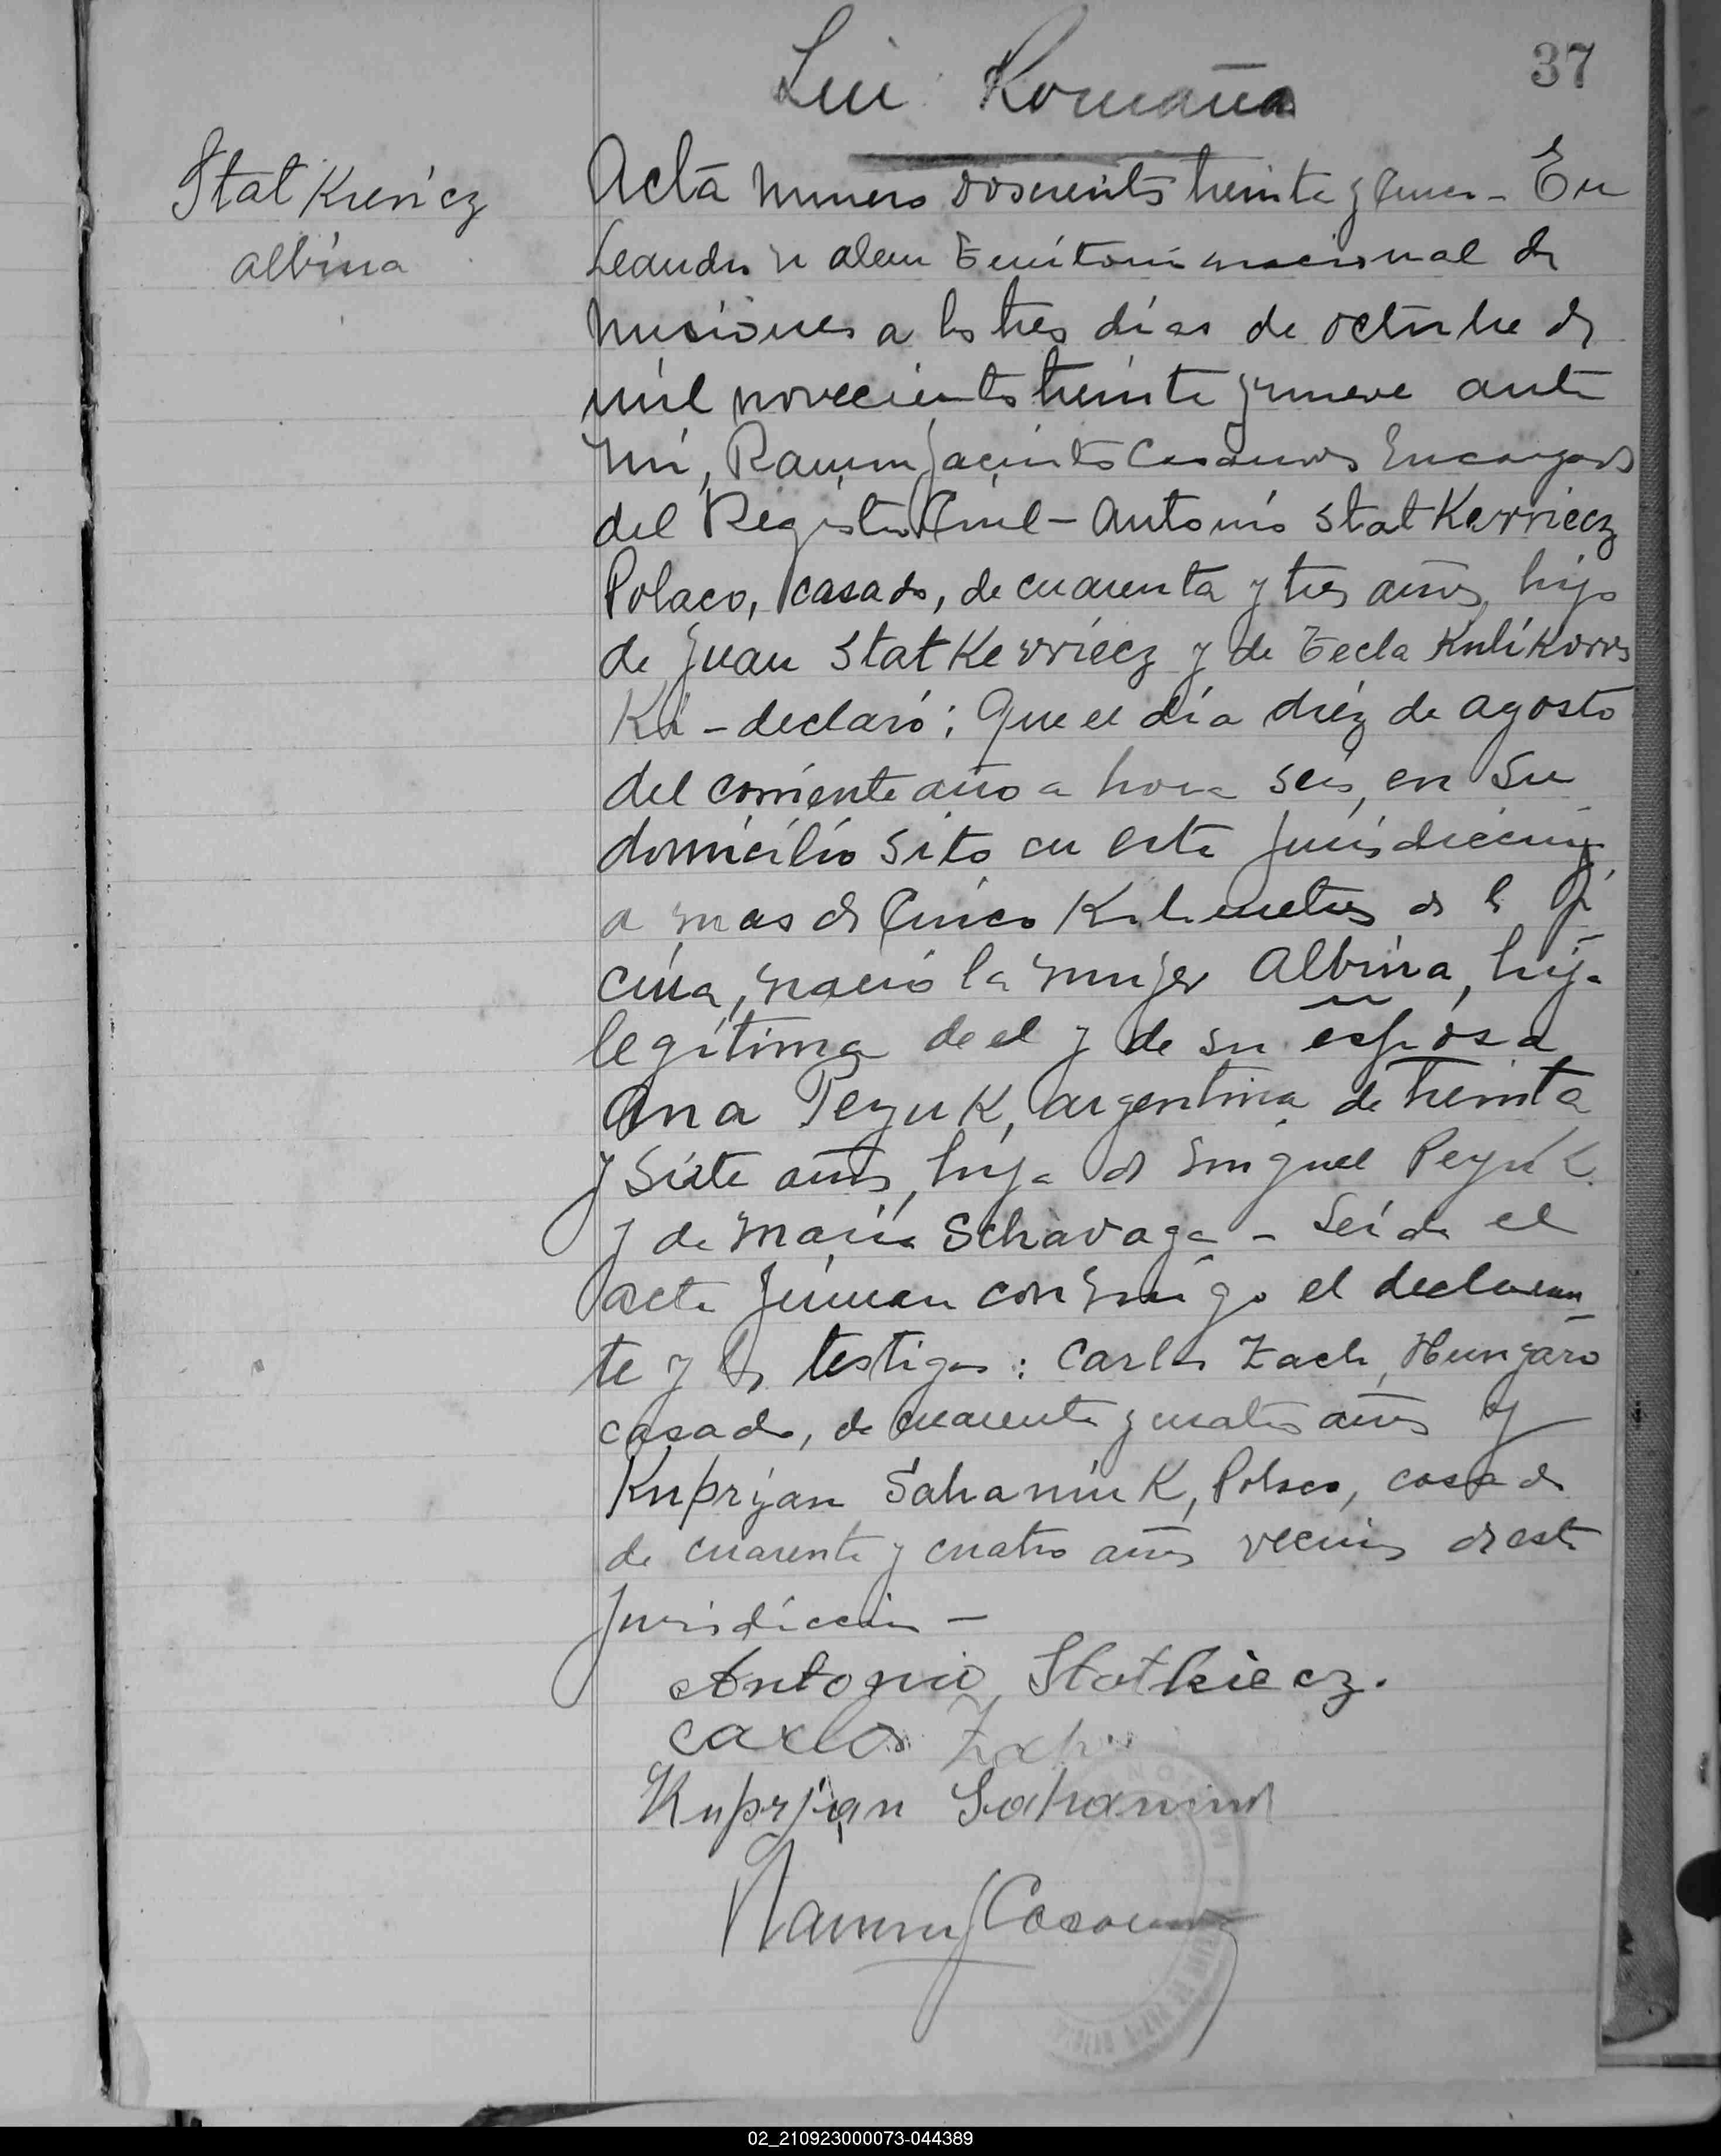 37
Lui Romaña
Stat Kievicz
albina
Acta numero doscientos treinta y cinco - En
Leandro N alem Territorio nacional de
misiones a los tres días de octubre de
mil novecientos treinta y nueve ante
mi, Ramon Jacinto Casanova Encargado
del Registro Civil - Antonio Stat Kewiecz
Polaco, casado, de cuarenta y tres años, hijo
de Juan Stat Kewiecz y de Tecla Kulikows
Ki - declaró: Que el día diéz de agosto
del corriente año a hora seis, en su
domicilio sito en esta jurisdiccion,
a mas de Cinco Kilometros de la ofi
cina, nació la mujer Albina, hija
legítima de el y de su esposa
Ana Peyuk, argentina de treinta
y siete años, hija de Miguel Peyuk
y de María Schavaga - Leída el
acta firman conmigo el declaran
te y los testigos: Carlos Zach, Hungaro
casado, de cuarenta y cuatro años y
Kuprjan SahaniuK, Polaco, casado
de cuarenta y cuatro años vecinos de esta
Jurisdiccion -
Antonio Statkiecz.
Carlos Zach
Kuprjan Sahaniuk
Ramon J Casanova
02_210923000073-044389